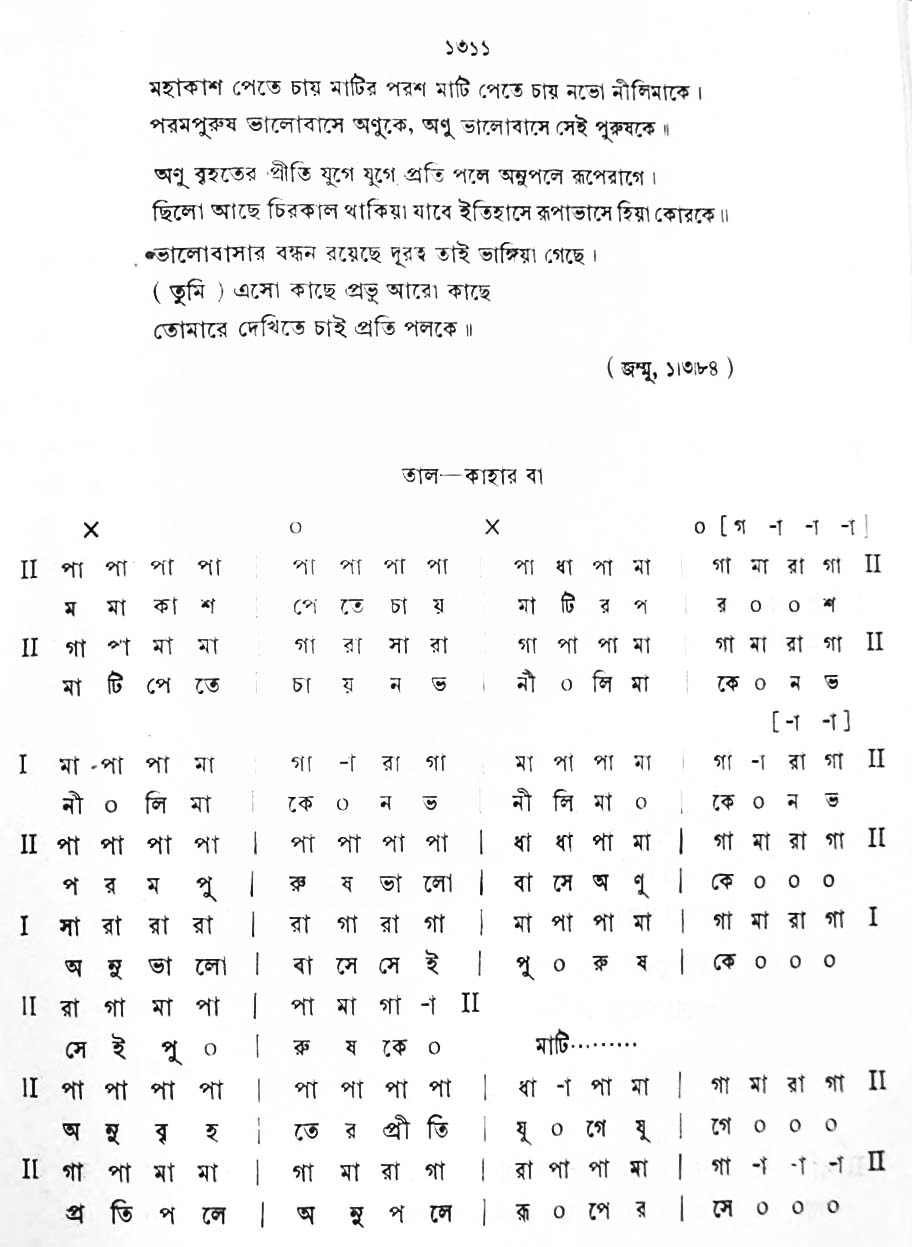 ১৩১১
মহাকাশ পেতে চায় মাটির পরশ মাটি পেতে চায় নভো নীলিমাকে।
পরমপুরুষ ভালোবাসে অণুকে, অণু ভালোবাসে সেই পুরুষকে॥
অণু বৃহতের প্রীতি যুগে যুগে প্রতি পলে অনুপলে রূপেরাগে।
ছিলো আছে চিরকাল থাকিয়া যাবে ইতিহাসে রূপাভাসে হিয়া কোরকে॥
ভালোবাসার বন্ধন রয়েছে দূরত্ব তাই ভাঙ্গিয়া গেছে।
( তুমি ) এসো কাছে প্রভু আরো কাছে
তোমারে দেখিতে চাই প্রতি পলকে॥
( জম্মু, ১।৩।৮৪ )
তাল—কাহার বা
× ০ × ০ [ গ -া -া -া ]
II পা পা পা পা | পা পা পা পা | পা ধা পা মা | গা মা রা গা II
ম মা কা শ | পে তে চা য় | মা টি র প | র ০ ০ শ
II গা পা মা মা | গা রা সা রা | গা পা পা মা | গা মা রা গা II
মা টি পে তে | চা য় ন ভ | নী ০ লি মা | কে ০ ন ভ
[ -া -া ]
I মা পা পা মা | গা -া রা গা | মা পা পা মা | গা -া রা গা II
নী ০ লি মা | কে ০ ন ভ | নী লি মা ০ | কে ০ ন ভ
II পা পা পা পা | পা পা পা পা | ধা ধা পা মা | গা মা রা গা II
প র ম পু | রু ষ ভা লো | বা সে অ ণু | কে ০ ০ ০
I সা রা রা রা | রা গা রা গা | মা পা পা মা | গা মা রা গা I
অ নু ভা লো | বা সে সে ই | পু ০ রু ষ | কে ০ ০ ০
II রা গা মা পা | পা মা গা -া II
সে ই পু ০ | রু ষ কে ০ মাটি.........
II পা পা পা পা | পা পা পা পা | ধা -া পা মা | গা মা রা গা II
অ নু বৃ হ | তে র প্রী তি | যু ০ গে যু | গে ০ ০ ০
II গা পা মা মা | গা মা রা গা | রা পা পা মা | গা -া -া -া II
প্র তি প লে | অ নু প লে | রূ ০ পে র | সে ০ ০ ০